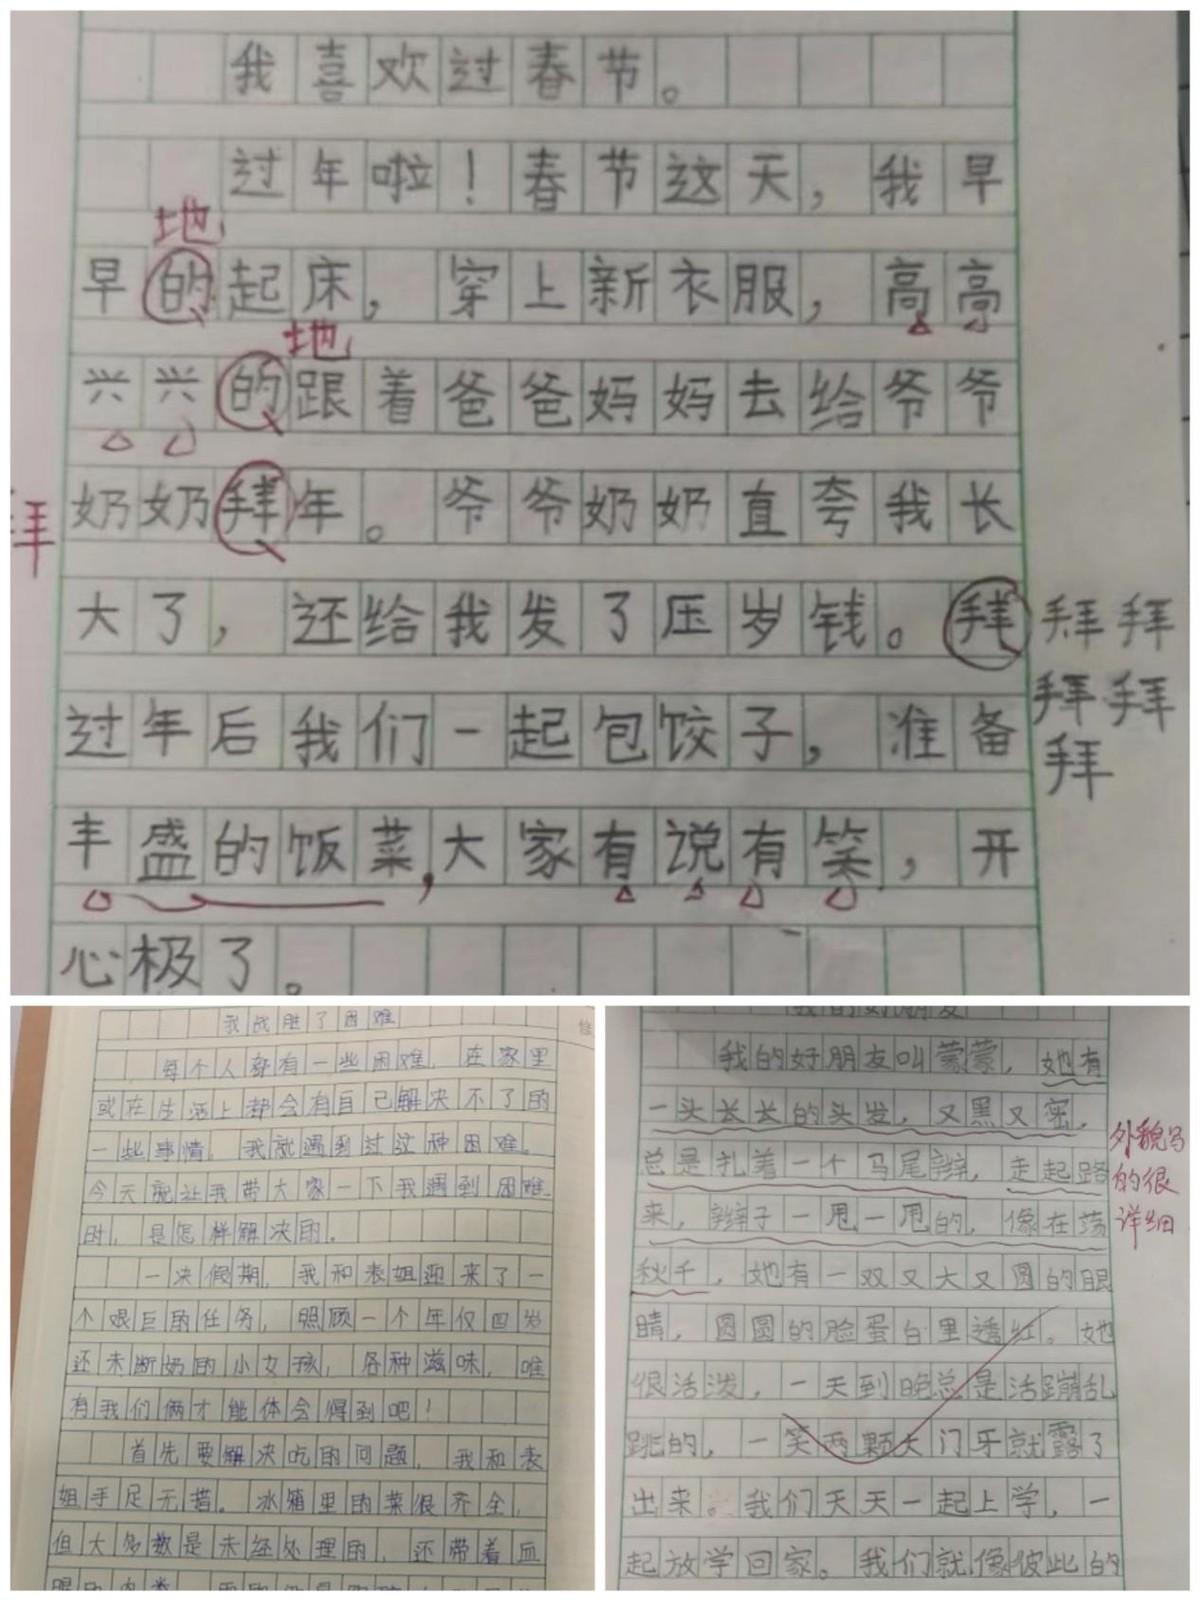 我喜欢过春节。
过年啦！春节这天，我早
地
早的起床，穿上新衣服，高高
地
兴兴的跟着爸爸妈妈去给爷爷
奶奶拜年。爷爷奶奶直夸我长
拜
大了，还给我发了压岁钱。拜
拜拜
拜拜
拜
过年后我们一起包饺子，准备
丰盛的饭菜，大家有说有笑，开
心极了。
我战胜了困难
每个人都有一些困难，在家里
或在生活上都会有自己解决不了的
一些事情。我就遇到过这种困难。
今天就让我带大家一下我遇到困难
时，是怎样解决的。
一次假期，我和表姐迎来了一
个艰巨的任务，照顾一个年仅四岁
还未断奶的小女孩，各种滋味，唯
有我们俩才能体会得到吧！
首先要解决吃的问题，我和表
姐手足无措。冰箱里的菜很齐全，
但大多数是未经处理的，还带着血
我的好朋友
我的好朋友叫蒙蒙，她有
一头长长的头发，又黑又密，
总是扎着一个马尾辫，走起路
来，辫子一甩一甩的，像在荡
秋千，她有一双又大又圆的眼
睛，圆圆的脸蛋白里透红。她
很活泼，一天到晚总是活蹦乱
跳的，一笑两颗大门牙就露了
出来。我们天天一起上学，一
起放学回家。我们就像彼此的
外貌写
的很
详细